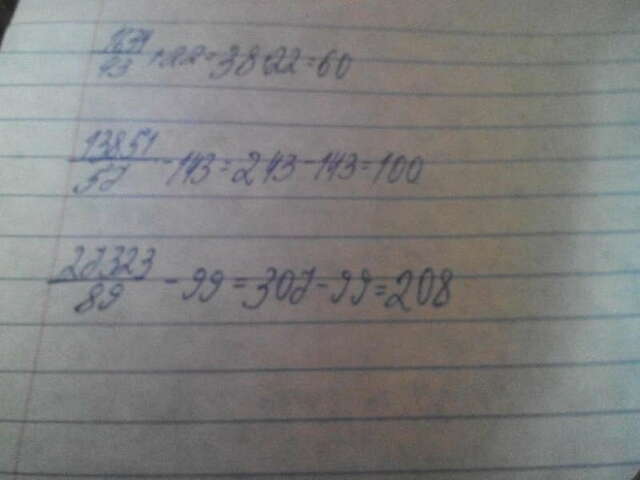 1634/43 +22=38+22=60
13851/57 -143=243-143=100
27323/89 -99=307-99=208